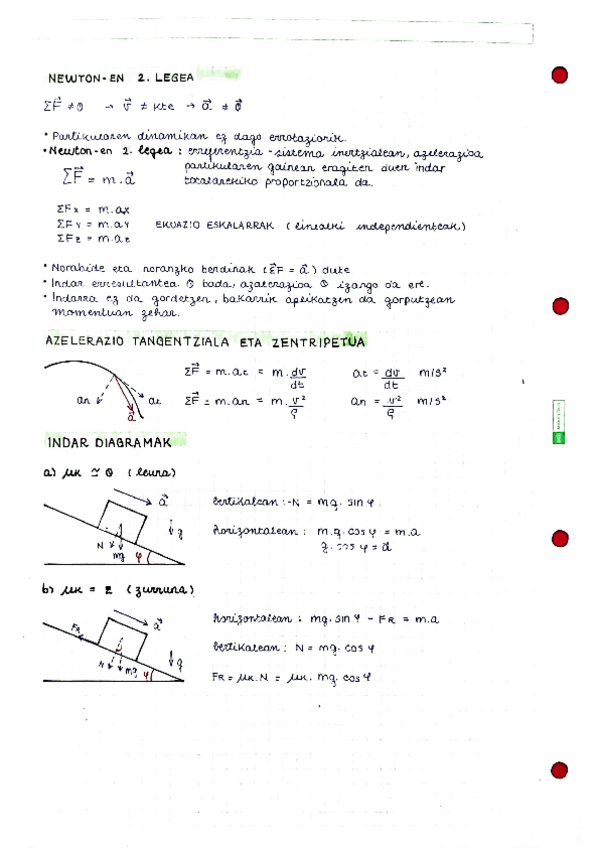 NEWTON-EN 2. LEGEA
ΣF⃗ ≠ 0 → v⃗ ≠ kte → a⃗ ≠ 0⃗
• Partikularen dinamikan ez dago errotaziorik.
• Newton-en 2. legea : erreferentzia-sistema inertzialean, azelerazioa
partikularen gainean eragiten duen indar
ΣF⃗ = m.a⃗ totalarekiko proportzionala da.
ΣFx = m.ax
ΣFy = m.ay EKUAZIO ESKALARRAK (linealki independienteak)
ΣFz = m.az
• Norabide eta noranzko berdinak (ΣF⃗ = a⃗) dute
• Indar erresultantea 0 bada, azelerazioa 0 izango da ere.
• Indarra ez da gordetzen, bakarrik aplikatzen da gorputzean
momentuan zehar.
AZELERAZIO TANGENTZIALA ETA ZENTRIPETUA
ΣF⃗ = m.at = m.dv/dt at = dv/dt m/s²
an at a⃗
ΣF⃗ = m.an = m.v²/ρ an = v²/ρ m/s²
INDAR DIAGRAMAK
a) μk ≃ 0 (leuna)
a⃗ g N mg φ
bertikalean : -N = mg. sin φ.
horizontalean : m.g. cos φ = m.a
g. cos φ = a⃗
b) μk = Σ (zurruna)
FR a⃗ g N mg φ
horizontalean : mg. sin φ - FR = m.a
bertikalean : N = mg. cos φ
FR = μk.N = μk. mg. cos φ